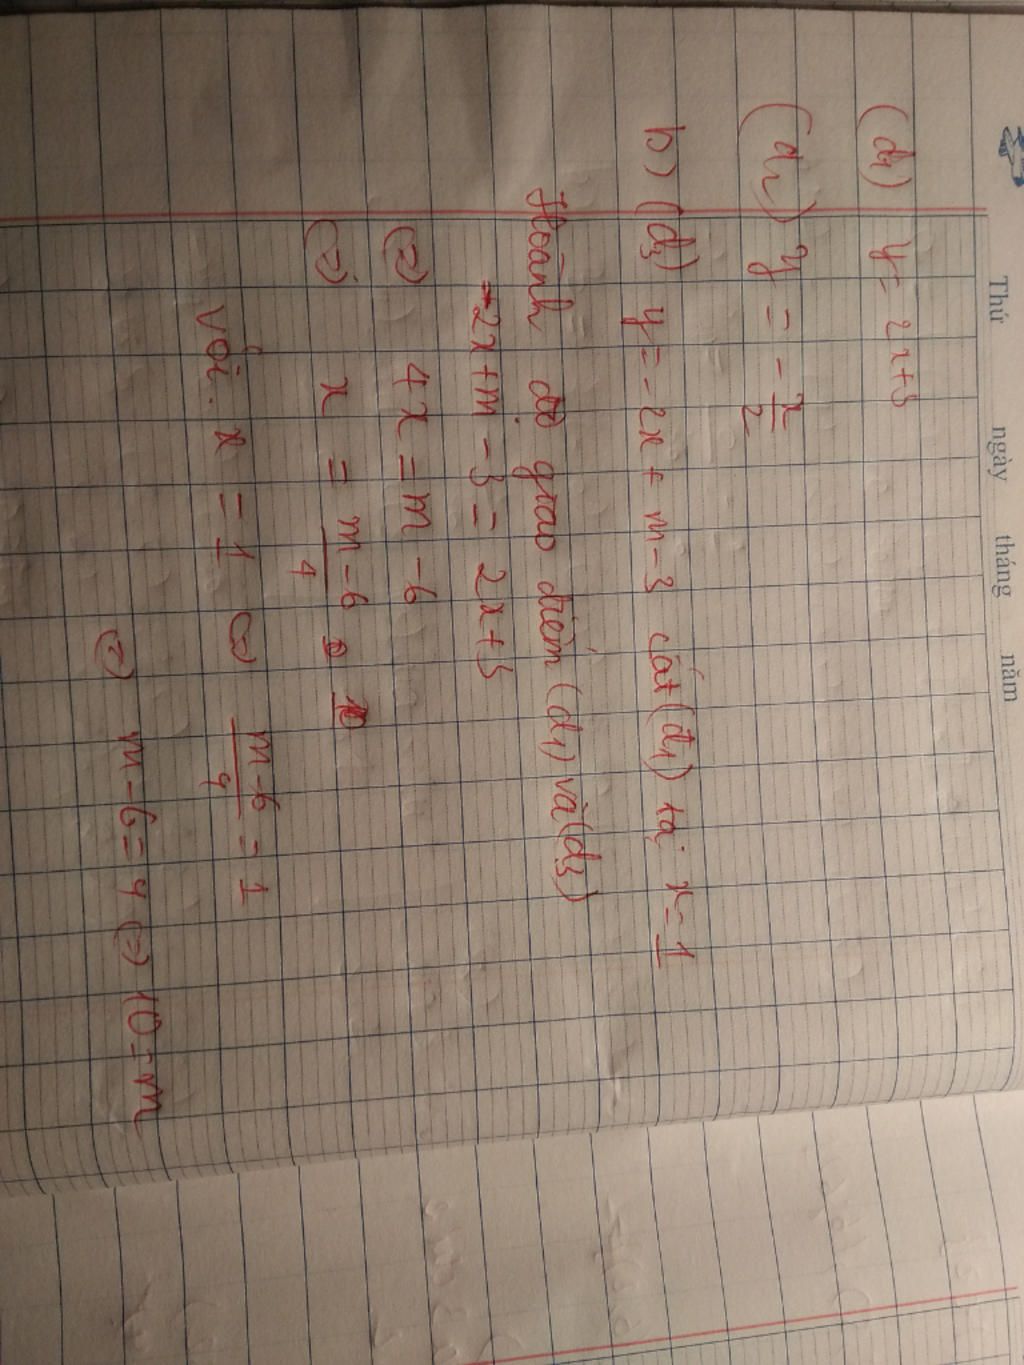 Thứ ngày tháng năm
(d1) y = 2x+3
(d2) y = -x/2
b) (d3) y = -2x + m-3 cắt (d1) tại x=1
Hoành độ giao điểm (d1) và (d3)
-2x+m-3 = 2x+3
(=) 4x = m-6
(=) x = m-6/4
Với x = 1 (=) m-6/4 = 1
(=) m-6 = 4 (=) 10 = m